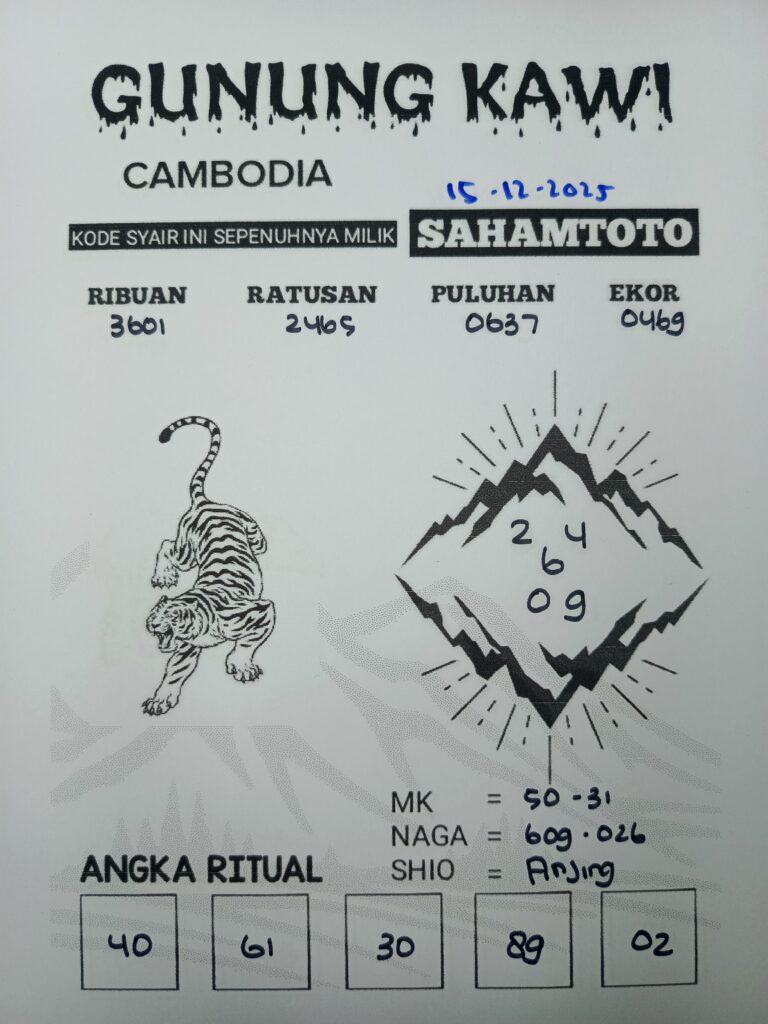 GUNUNG KAWI
CAMBODIA
15-12-2025
KODE SYAIR INI SEPENUHNYA MILIK SAHAMTOTO
RIBUAN RATUSAN PULUHAN EKOR
3601 2465 0637 0469
2 4
6
0 9
MK = 50-31
NAGA = 609.026
SHIO = Anjing
ANGKA RITUAL
40 61 30 89 02